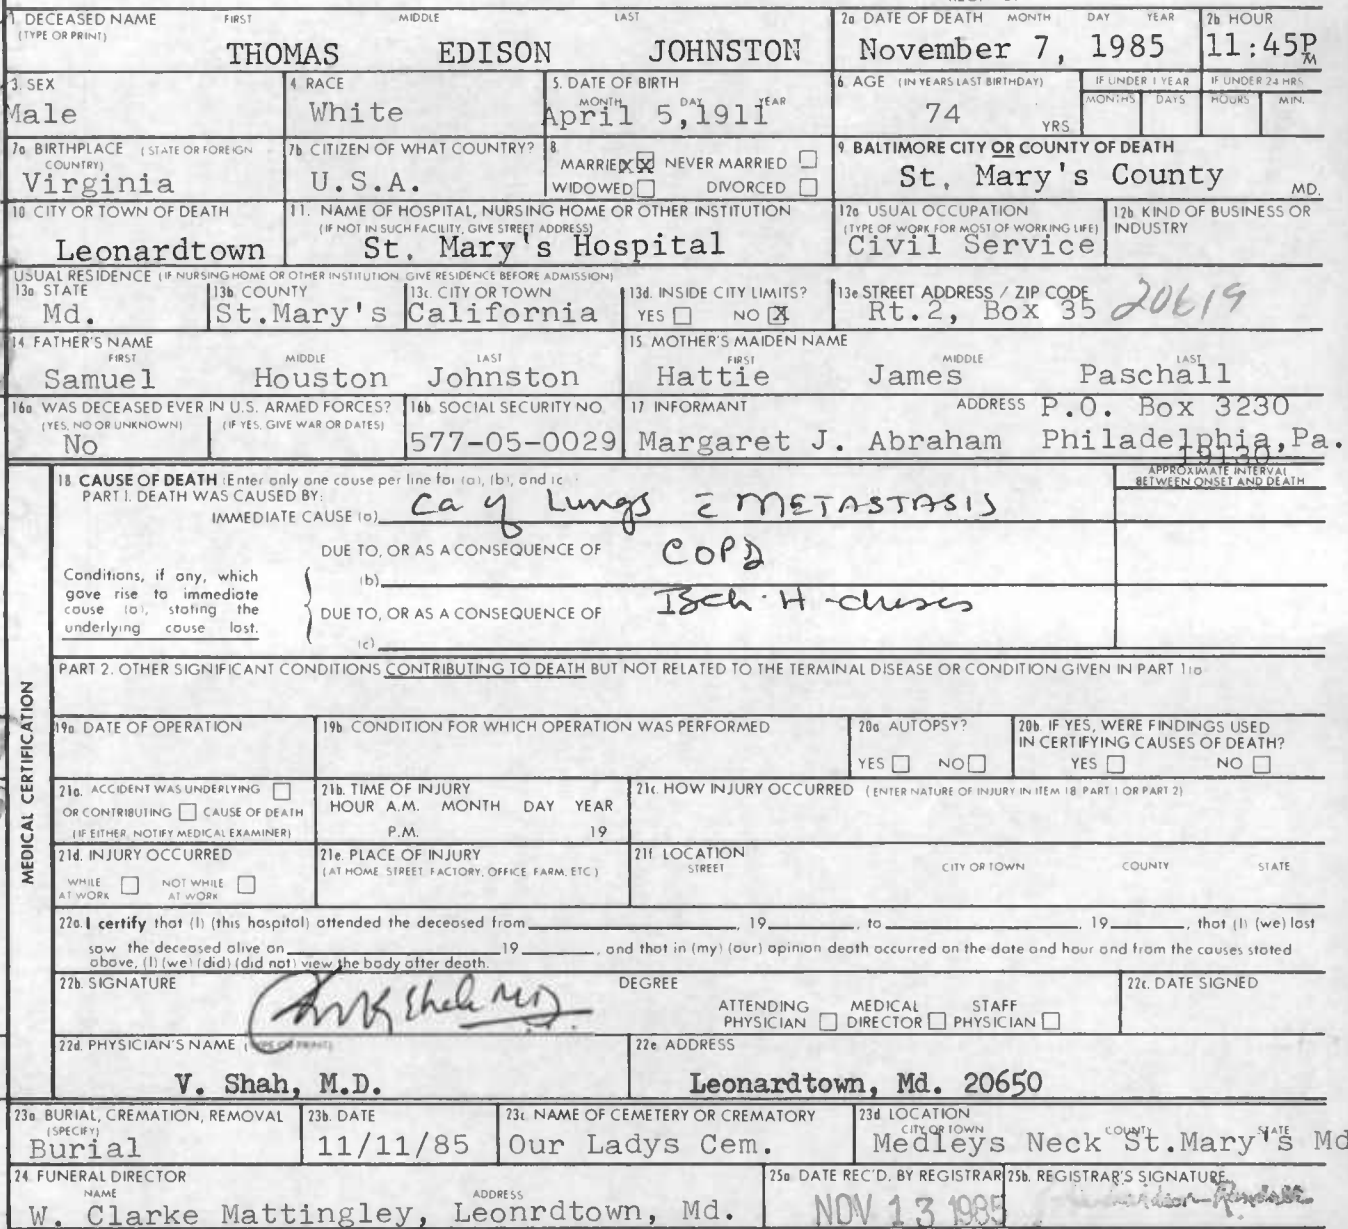 1 DECEASED NAME FIRST MIDDLE LAST
(TYPE OR PRINT)
THOMAS EDISON JOHNSTON
2a DATE OF DEATH MONTH DAY YEAR
November 7, 1985
2b HOUR
11:45P
M
3. SEX
Male
4 RACE
White
5. DATE OF BIRTH
MONTH DAY YEAR
April 5,1911
6 AGE (IN YEARS LAST BIRTHDAY)
74 YRS
IF UNDER 1 YEAR
MONTHS DAYS
IF UNDER 24 HRS
HOURS MIN.
7a BIRTHPLACE (STATE OR FOREIGN
COUNTRY)
Virginia
7b CITIZEN OF WHAT COUNTRY?
U.S.A.
8
MARRIED XX NEVER MARRIED
WIDOWED DIVORCED
9 BALTIMORE CITY OR COUNTY OF DEATH
St. Mary's County MD.
10 CITY OR TOWN OF DEATH
Leonardtown
11. NAME OF HOSPITAL, NURSING HOME OR OTHER INSTITUTION
(IF NOT IN SUCH FACILITY, GIVE STREET ADDRESS)
St. Mary's Hospital
12a USUAL OCCUPATION
(TYPE OF WORK FOR MOST OF WORKING LIFE)
Civil Service
12b KIND OF BUSINESS OR
INDUSTRY
USUAL RESIDENCE (IF NURSING HOME OR OTHER INSTITUTION GIVE RESIDENCE BEFORE ADMISSION)
13a STATE
Md.
13b COUNTY
St.Mary's
13c. CITY OR TOWN
California
13d. INSIDE CITY LIMITS?
YES NO X
13e STREET ADDRESS / ZIP CODE
Rt.2, Box 35 20619
14 FATHER'S NAME
FIRST MIDDLE LAST
Samuel Houston Johnston
15 MOTHER'S MAIDEN NAME
FIRST MIDDLE LAST
Hattie James Paschall
16a WAS DECEASED EVER IN U.S. ARMED FORCES?
(YES, NO OR UNKNOWN) (IF YES, GIVE WAR OR DATES)
No
16b SOCIAL SECURITY NO.
577-05-0029
17 INFORMANT ADDRESS P.O. Box 3230
Margaret J. Abraham Philadelphia,Pa.
19130
18 CAUSE OF DEATH (Enter only one cause per line for (a), (b), and (c)
APPROXIMATE INTERVAL
BETWEEN ONSET AND DEATH
PART I. DEATH WAS CAUSED BY:
IMMEDIATE CAUSE (a) Ca of Lungs c̄ METASTASIS
DUE TO, OR AS A CONSEQUENCE OF COPD
(b)
Conditions, if any, which
gave rise to immediate
cause (a), stating the
underlying cause last.
DUE TO, OR AS A CONSEQUENCE OF
(c)
MEDICAL CERTIFICATION
PART 2. OTHER SIGNIFICANT CONDITIONS CONTRIBUTING TO DEATH BUT NOT RELATED TO THE TERMINAL DISEASE OR CONDITION GIVEN IN PART 1(a
19a DATE OF OPERATION
19b CONDITION FOR WHICH OPERATION WAS PERFORMED
20a AUTOPSY?
YES NO
20b IF YES, WERE FINDINGS USED
IN CERTIFYING CAUSES OF DEATH?
YES NO
21a. ACCIDENT WAS UNDERLYING
OR CONTRIBUTING CAUSE OF DEATH
(IF EITHER, NOTIFY MEDICAL EXAMINER)
21b. TIME OF INJURY
HOUR A.M. MONTH DAY YEAR
P.M. 19
21c. HOW INJURY OCCURRED (ENTER NATURE OF INJURY IN ITEM 18 PART 1 OR PART 2)
21d. INJURY OCCURRED
WHILE AT WORK NOT WHILE AT WORK
21e. PLACE OF INJURY
(AT HOME STREET, FACTORY, OFFICE FARM, ETC)
21f LOCATION
STREET CITY OR TOWN COUNTY STATE
22a. I certify that (I) (this hospital) attended the deceased from , 19 , to , 19 , that (I) (we) last
saw the deceased alive on 19 , and that in (my) (our) opinion death occurred on the date and hour and from the causes stated
above, (I) (we) (did) (did not) view the body after death.
22b. SIGNATURE
Shah MD
DEGREE
ATTENDING PHYSICIAN MEDICAL DIRECTOR STAFF PHYSICIAN
22c. DATE SIGNED
22d. PHYSICIAN'S NAME (TYPE OR PRINT)
V. Shah, M.D.
22e ADDRESS
Leonardtown, Md. 20650
23a BURIAL, CREMATION, REMOVAL
(SPECIFY)
Burial
23b. DATE
11/11/85
23c NAME OF CEMETERY OR CREMATORY
Our Ladys Cem.
23d LOCATION
CITY OR TOWN COUNTY STATE
Medleys Neck St.Mary's Md
24 FUNERAL DIRECTOR
NAME ADDRESS
W. Clarke Mattingley, Leonrdtown, Md.
25a DATE REC'D. BY REGISTRAR
NOV 13 1985
25b. REGISTRAR'S SIGNATURE